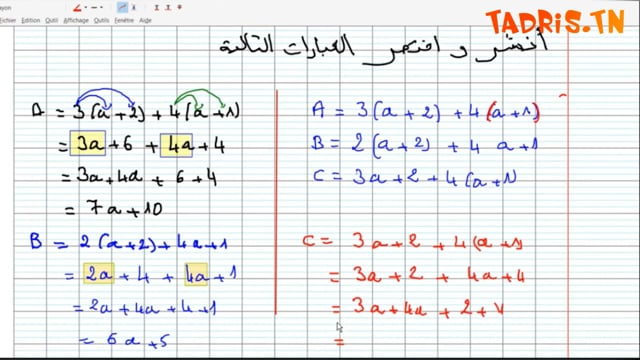 TADRIS.TN
Fichier Edition Outil Affichage Aide
أنشر و اختصر العبارات التالية
A = 3(a+2) + 4(a+1)
= 3a + 6 + 4a + 4
= 3a + 4a + 6 + 4
= 7a + 10
B = 2(a+2) + 4a + 1
= 2a + 4 + 4a + 1
= 2a + 4a + 4 + 1
= 6a + 5
A = 3(a+2) + 4(a+1)
B = 2(a+2) + 4 a + 1
C = 3a + 2 + 4(a+1)
C = 3a + 2 + 4(a+1)
= 3a + 2 + 4a + 4
= 3a + 4a + 2 + 4
=